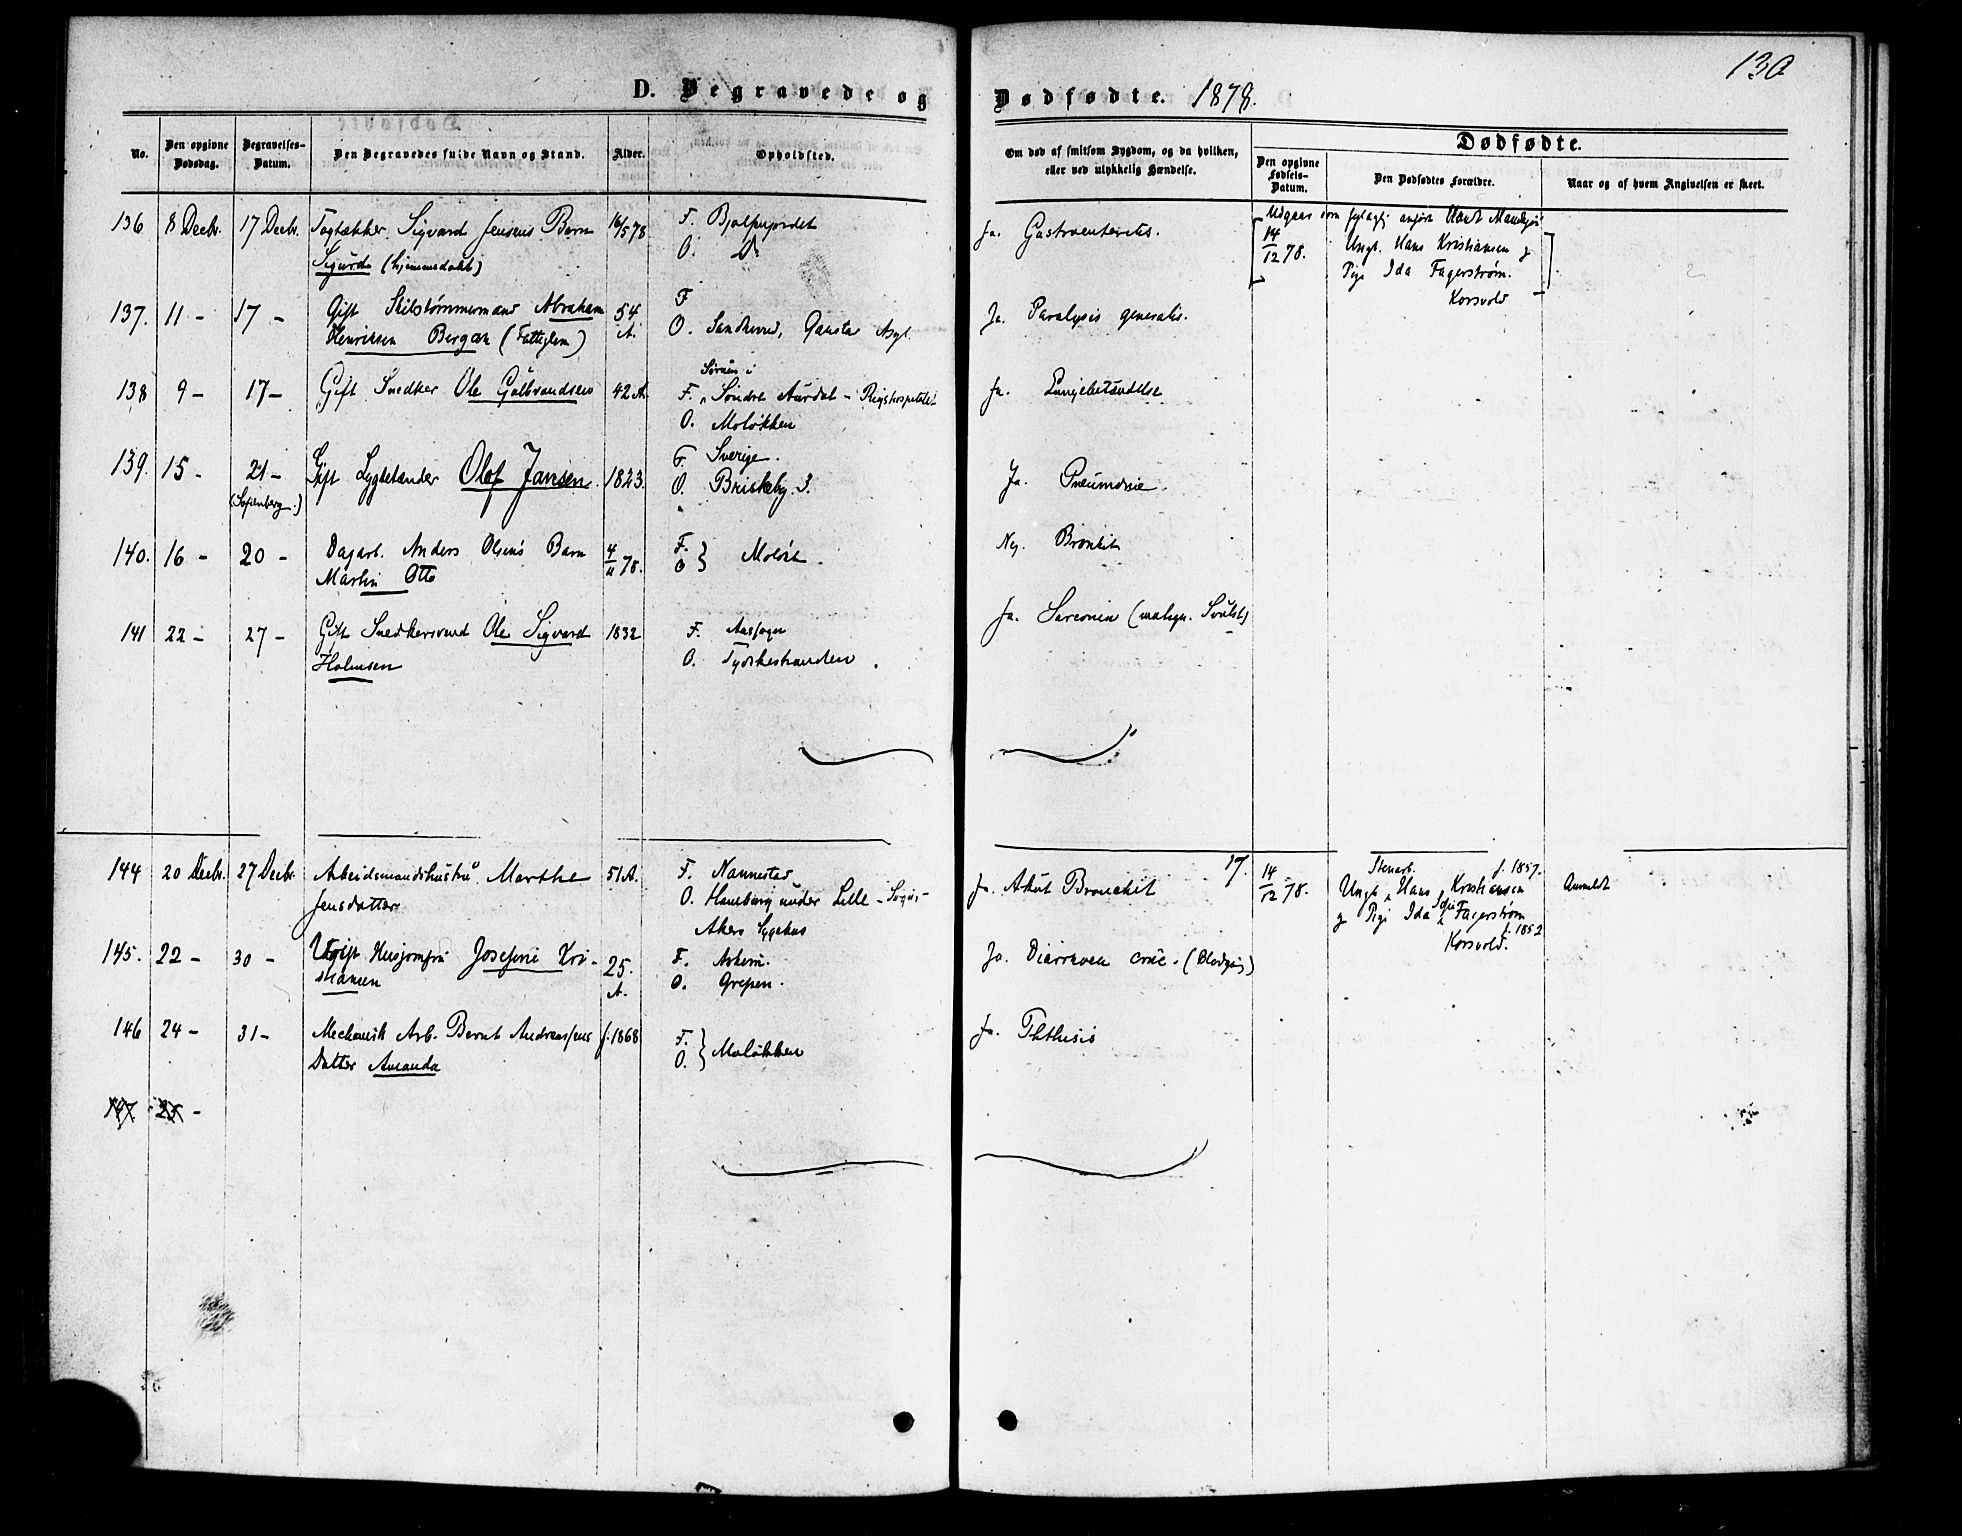 130
D. Begravede og Dødfødte. 1878.
No.
Den opgivne Dødsdag.
Begravelses-Datum.
Den Begravedes fulde Navn og Stand.
Alder.
Opholdsted.
Om død af smitsom Sygdom, og da hvilken, eller ved ulykkelig Hændelse.
Dødfødte.
Den opgivne Fødsels-Datum.
Den Dødfødtes Forældre.
Naar og af hvem Angivelsen er skeet.
136 8 Decbr. 17 Decbr. Tagtækker Sigvard Jensens Barn 16/5 78 F. Ja. Gastroenteritis.
Sigurd (hjemmedøbt) O. Do
14/12 78. Ungk. Hans Kristiansen g
Pige Ida Fagerström.
Korsvold
137. 11 - 17 - Gift Skibstømmermand Abraham 54 F Ja. Paralysis generalis.
Henriksen Bergan (Fattiglem) A. O. Sandhered, Gausta Asyl.
138 9 - 17 - Gift Snedker Ole Gulbrandsen 42 A. F. Söndre Aurdal - Rigshospitalet Ja. Lungebetændelse
O. Moløkken
139. 15 - 21 - Gift Lygtetænder Olof Jansen. 1823. F. Sverige. Ja. Pneumonie.
(Sofienberg.) O. Briskeby. 3.
140. 16 - 20 - Dagarb. Anders Olsens Barn 4/11 78. F. O } Moløk. Nej. Bronkit
Martin Otto
141 22 - 27 - Gift Snedkersvend Ole Sigvard 1832 F. Ja. Sarcomia (malign. Svulst)
Holmsen O. Tyskestranden.
144 20 Decbr. 27 Decbr. Arbeidsmandshustru Marthe 51 A. F. Nannestad Ja. Akut Bronchit 17. 14/12 78. Stenarb. f. 1857.
Jensdatter O. Hansbury under Lille-Sogn- Ungk Hans Kristiansen Anmeldt
Akers Sygehus g Pige Ida Fagerström f. 1852
Korsvold.
145. 22 - 30 - Ugift Husjomfru Josefine Kri- 25. A. F. Askim. Ja. Diarrhoea cruc. (Blodgang)
stiansen O. Grefsen.
146 24 - 31 - Mechanisk Arb. Bernt Andreassens f. 1868 F. O. } Moløkken Ja. Phthisis
Datter Amanda
147. 25 -